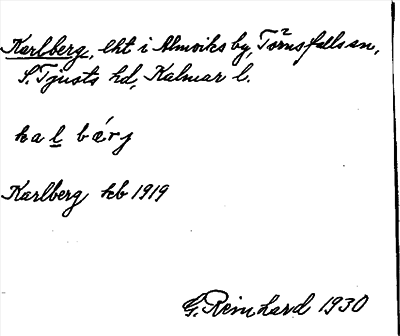 Karlberg, lht i Almviks by, Törnsfalls sn,
S. Tjusts hd, Kalmar l.
kal bǽrj
Karlberg kb 1919
G. Reinhard 1930